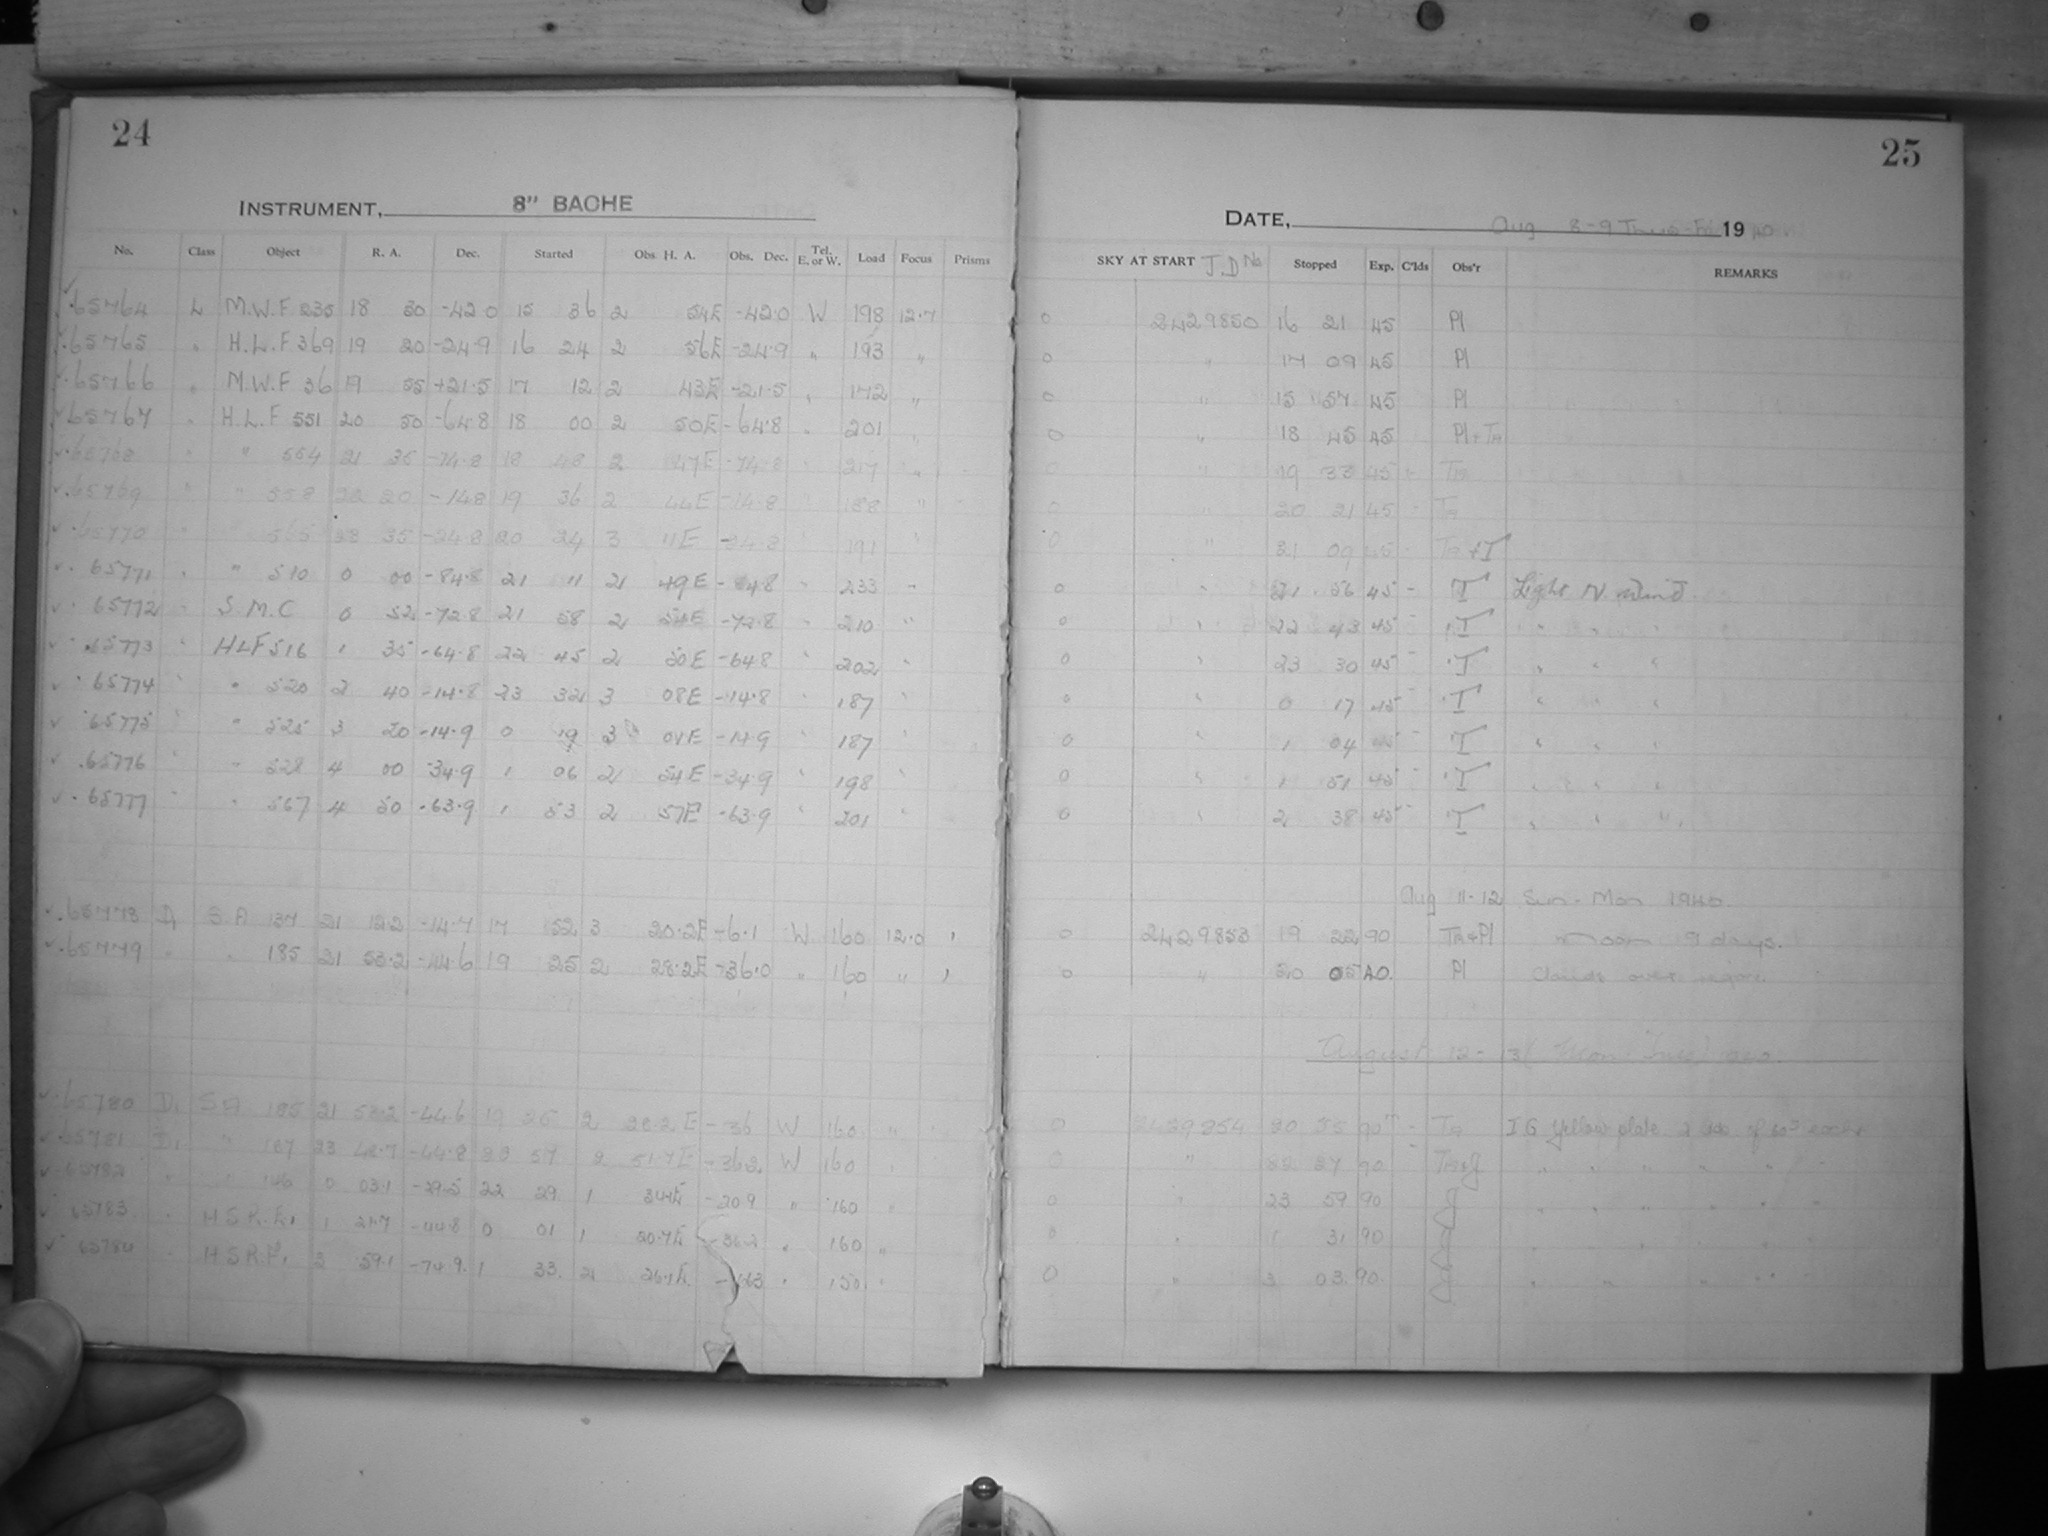 24
INSTRUMENT, 8" BACHE
No. Class Object R. A. Dec. Started Obs. H. A. Obs. Dec. Tel. E. or W. Load Focus Prisms
65764 L M.W.F 235 18 50 -42.0 15 36 2 54E -42.0 W 198 12.7
65765 " H.L.F 369 19 20 -24.9 16 24 2 56E -24.9 " 193 "
65766 " M.W.F 36 19 55 +21.5 17 12 2 43E -21.5 " 172 "
65767 " H.L.F 551 20 50 -64.8 18 00 2 50E -64.8 " 201 "
65768 " " 554 21 35 -74.8 18 48 2 47E -74.8 " 217 "
65769 " " 558 22 20 -14.8 19 36 2 44E -14.8 " 188 "
65770 " 565 23 35 -24.8 20 24 3 11E -24.8 " 191 "
65771 " " 510 0 00 -84.8 21 11 2 49E -84.8 " 233 "
65772 " S.M.C 0 52 -72.8 21 58 2 54E -72.8 " 210 "
65773 " HLF 516 1 35 -64.8 22 45 2 50E -64.8 " 202 "
65774 " " 520 2 40 -14.8 23 32 3 08E -14.8 " 187 "
65775 " " 525 3 20 -14.9 0 19 3 01E -14.9 " 187 "
65776 " " 528 4 00 -34.9 1 06 2 54E -34.9 " 198 "
65777 " " 567 4 50 -63.9 1 53 2 57E -63.9 " 201 "
65778 D, S A 137 21 12.2 -14.7 17 52 3 20.2E -6.1 W 160 12.0
65779 " " 185 21 53.2 -44.6 19 25 2 28.2E -36.0 " 160 "
65780 D, S A 185 21 53.2 -44.6 19 25 2 28.2E -36 W 160 "
65781 D, " 187 23 42.7 -44.8 20 57 2 51.7E -36.2 W 160
65782 " 146 0 03.1 -29.5 22 29 1 34.1E -20.9 " 160
65783 H S R.E, 1 21.7 -44.8 0 01 1 20.7E -36.2 " 160 "
65784 H S R.F, 3 59.1 -74.9 1 33 2 26.1E 150
25
DATE, Aug 8-9 Thurs-Fri 1940
SKY AT START J.D No Stopped Exp. C'lds Obs'r REMARKS
0 2429850 16 21 45 Pl
0 " 17 09 45 Pl
0 " 15 57 45 Pl
0 " 18 45 45 Pl + Ta
0 " 19 33 45 - Ta
0 " 20 21 45 - Ta
0 " 21 09 45 - Ta + T
0 " 21 56 45 - T Light N wind
0 " 22 43 45 - T " " "
0 " 23 30 45 - T " " "
0 " 0 17 45 - T " " "
0 " 1 04 45 - T " " "
0 " 1 51 45 - T " " "
0 " 2 38 45 - T " " "
Aug 11-12 Sun-Mon 1940
0 2429853 19 22 90 Ta&Pl moon 9 days.
0 " 20 05 40 Pl Clouds over region.
August 12-13 Mon-Tues 1940
0 2429854 20 55 90 - Ta I G Yellow plate
0 " 22 27 90 - Ta&J " " " " "
0 " 23 59 90 " " " " "
0 " 1 31 90 " " " " "
0 " 3 03 90 " " " " "